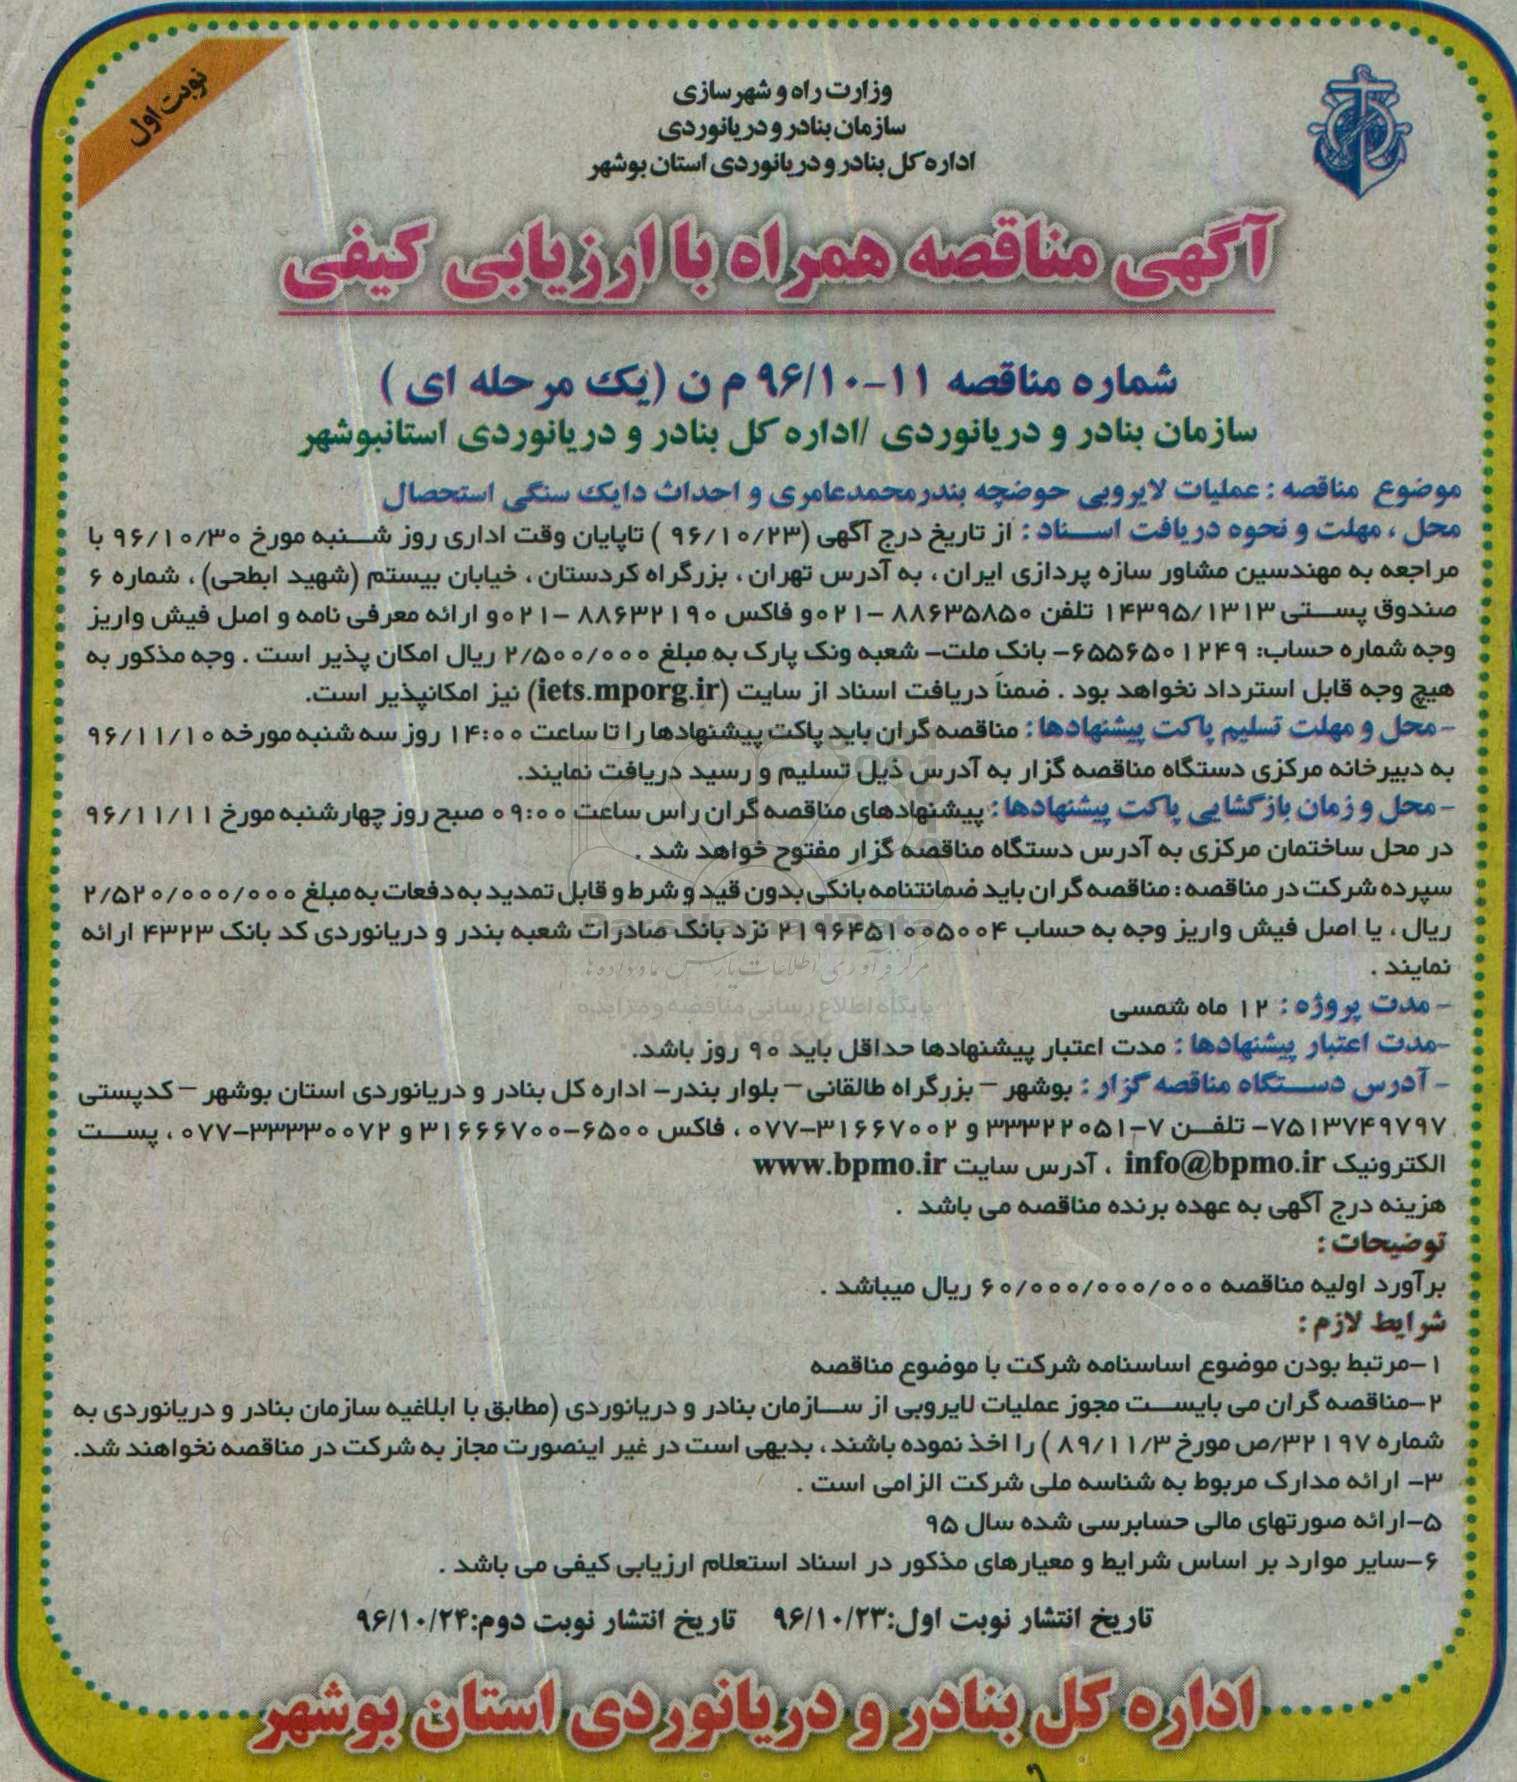 نوبت اول
وزارت راه و شهرسازی
سازمان بنادر و دریانوردی
اداره کل بنادر و دریانوردی استان بوشهر
آگهی مناقصه همراه با ارزیابی کیفی
شماره مناقصه ۱۱-۹۶/۱۰ م ن (یک مرحله ای )
سازمان بنادر و دریانوردی /اداره کل بنادر و دریانوردی استانبوشهر
موضوع مناقصه : عملیات لایروبی حوضچه بندرمحمدعامری و احداث دایک سنگی استحصال
محل ، مهلت و نحوه دریافت اسناد : از تاریخ درج آگهی (۹۶/۱۰/۲۳ ) تاپایان وقت اداری روز شنبه مورخ ۹۶/۱۰/۳۰ با
مراجعه به مهندسین مشاور سازه پردازی ایران ، به آدرس تهران ، بزرگراه کردستان ، خیابان بیستم (شهید ابطحی) ، شماره ۶
صندوق پستی ۱۴۳۹۵/۱۳۱۳ تلفن ۸۸۶۳۵۸۵۰ -۰۲۱و فاکس ۸۸۶۳۲۱۹۰ -۰۲۱و ارائه معرفی نامه و اصل فیش واریز
وجه شماره حساب: ۶۵۵۶۵۰۱۲۴۹- بانک ملت- شعبه ونک پارک به مبلغ ۲/۵۰۰/۰۰۰ ریال امکان پذیر است . وجه مذکور به
هیچ وجه قابل استرداد نخواهد بود . ضمناً دریافت اسناد از سایت (iets.mporg.ir) نیز امکانپذیر است.
- محل و مهلت تسلیم پاکت پیشنهادها : مناقصه گران باید پاکت پیشنهادها را تا ساعت ۱۴:۰۰ روز سه شنبه مورخه ۹۶/۱۱/۱۰
به دبیرخانه مرکزی دستگاه مناقصه گزار به آدرس ذیل تسلیم و رسید دریافت نمایند.
- محل و زمان بازگشایی پاکت پیشنهادها : پیشنهادهای مناقصه گران راس ساعت ۰۹:۰۰ صبح روز چهارشنبه مورخ ۹۶/۱۱/۱۱
در محل ساختمان مرکزی به آدرس دستگاه مناقصه گزار مفتوح خواهد شد .
سپرده شرکت در مناقصه : مناقصه گران باید ضمانتنامه بانکی بدون قید و شرط و قابل تمدید به دفعات به مبلغ ۲/۵۲۰/۰۰۰/۰۰۰
ریال ، یا اصل فیش واریز وجه به حساب ۲۱۹۶۴۵۱۰۰۵۰۰۴ نزد بانک صادرات شعبه بندر و دریانوردی کد بانک ۴۳۲۳ ارائه
نمایند .
ParsNamadData
مرکز فرآوری اطلاعات پارس نماد داده ها
پایگاه اطلاع رسانی مناقصه و مزایده
- مدت پروژه : ۱۲ ماه شمسی
-مدت اعتبار پیشنهادها : مدت اعتبار پیشنهادها حداقل باید ۹۰ روز باشد.
- آدرس دستگاه مناقصه گزار : بوشهر – بزرگراه طالقانی – بلوار بندر- اداره کل بنادر و دریانوردی استان بوشهر – کدپستی
۷۵۱۳۷۴۹۷۹۷- تلفن ۷-۳۳۳۲۲۰۵۱ و ۳۱۶۶۷۰۰۲-۰۷۷ ، فاکس ۶۵۰۰-۳۱۶۶۶۷۰۰ و ۳۳۳۳۰۰۷۲-۰۷۷ ، پست
الکترونیک info@bpmo.ir ، آدرس سایت www.bpmo.ir
هزینه درج آگهی به عهده برنده مناقصه می باشد .
توضیحات :
برآورد اولیه مناقصه ۶۰/۰۰۰/۰۰۰/۰۰۰ ریال میباشد .
شرایط لازم :
۱-مرتبط بودن موضوع اساسنامه شرکت با موضوع مناقصه
۲-مناقصه گران می بایست مجوز عملیات لایروبی از سازمان بنادر و دریانوردی (مطابق با ابلاغیه سازمان بنادر و دریانوردی به
شماره ۳۲۱۹۷/ص مورخ ۸۹/۱۱/۳ ) را اخذ نموده باشند ، بدیهی است در غیر اینصورت مجاز به شرکت در مناقصه نخواهند شد.
۳- ارائه مدارک مربوط به شناسه ملی شرکت الزامی است .
۵-ارائه صورتهای مالی حسابرسی شده سال ۹۵
۶-سایر موارد بر اساس شرایط و معیارهای مذکور در اسناد استعلام ارزیابی کیفی می باشد .
تاریخ انتشار نوبت اول:۹۶/۱۰/۲۳ تاریخ انتشار نوبت دوم:۹۶/۱۰/۲۴
اداره کل بنادر و دریانوردی استان بوشهر